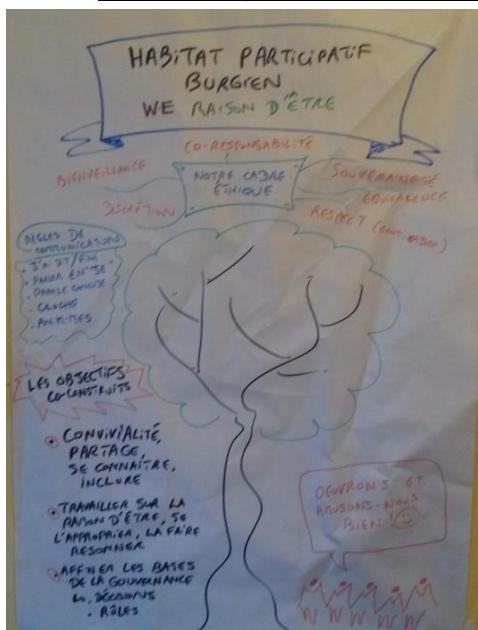 HABITAT PARTICIPATIF
BURGIEN
WE RAISON D'ÊTRE
CO-RESPONSABILITÉ
BIENVEILLANCE
NOTRE CADRE
ÉTHIQUE
SOUVERAINETÉ
ÉQUIVALENCE
DISCRÉTION
RESPECT
RÈGLES DE
COMMUNICATION
- J'AI DIT/FINI
- PARLER EN "JE"
- PAROLE CONCISE
- CLOCHE
LES OBJECTIFS
CO-CONSTRUITS
CONVIVIALITÉ,
PARTAGE,
SE CONNAÎTRE,
INCLURE
TRAVAILLER SUR LA
RAISON D'ÊTRE, SE
L'APPROPRIER, LA FAIRE
RESONNER
AFFINER LES BASES
DE LA GOUVERNANCE
DÉCISIONS
RÔLES
OEUVRONS ET
AMUSONS-NOUS
BIEN !